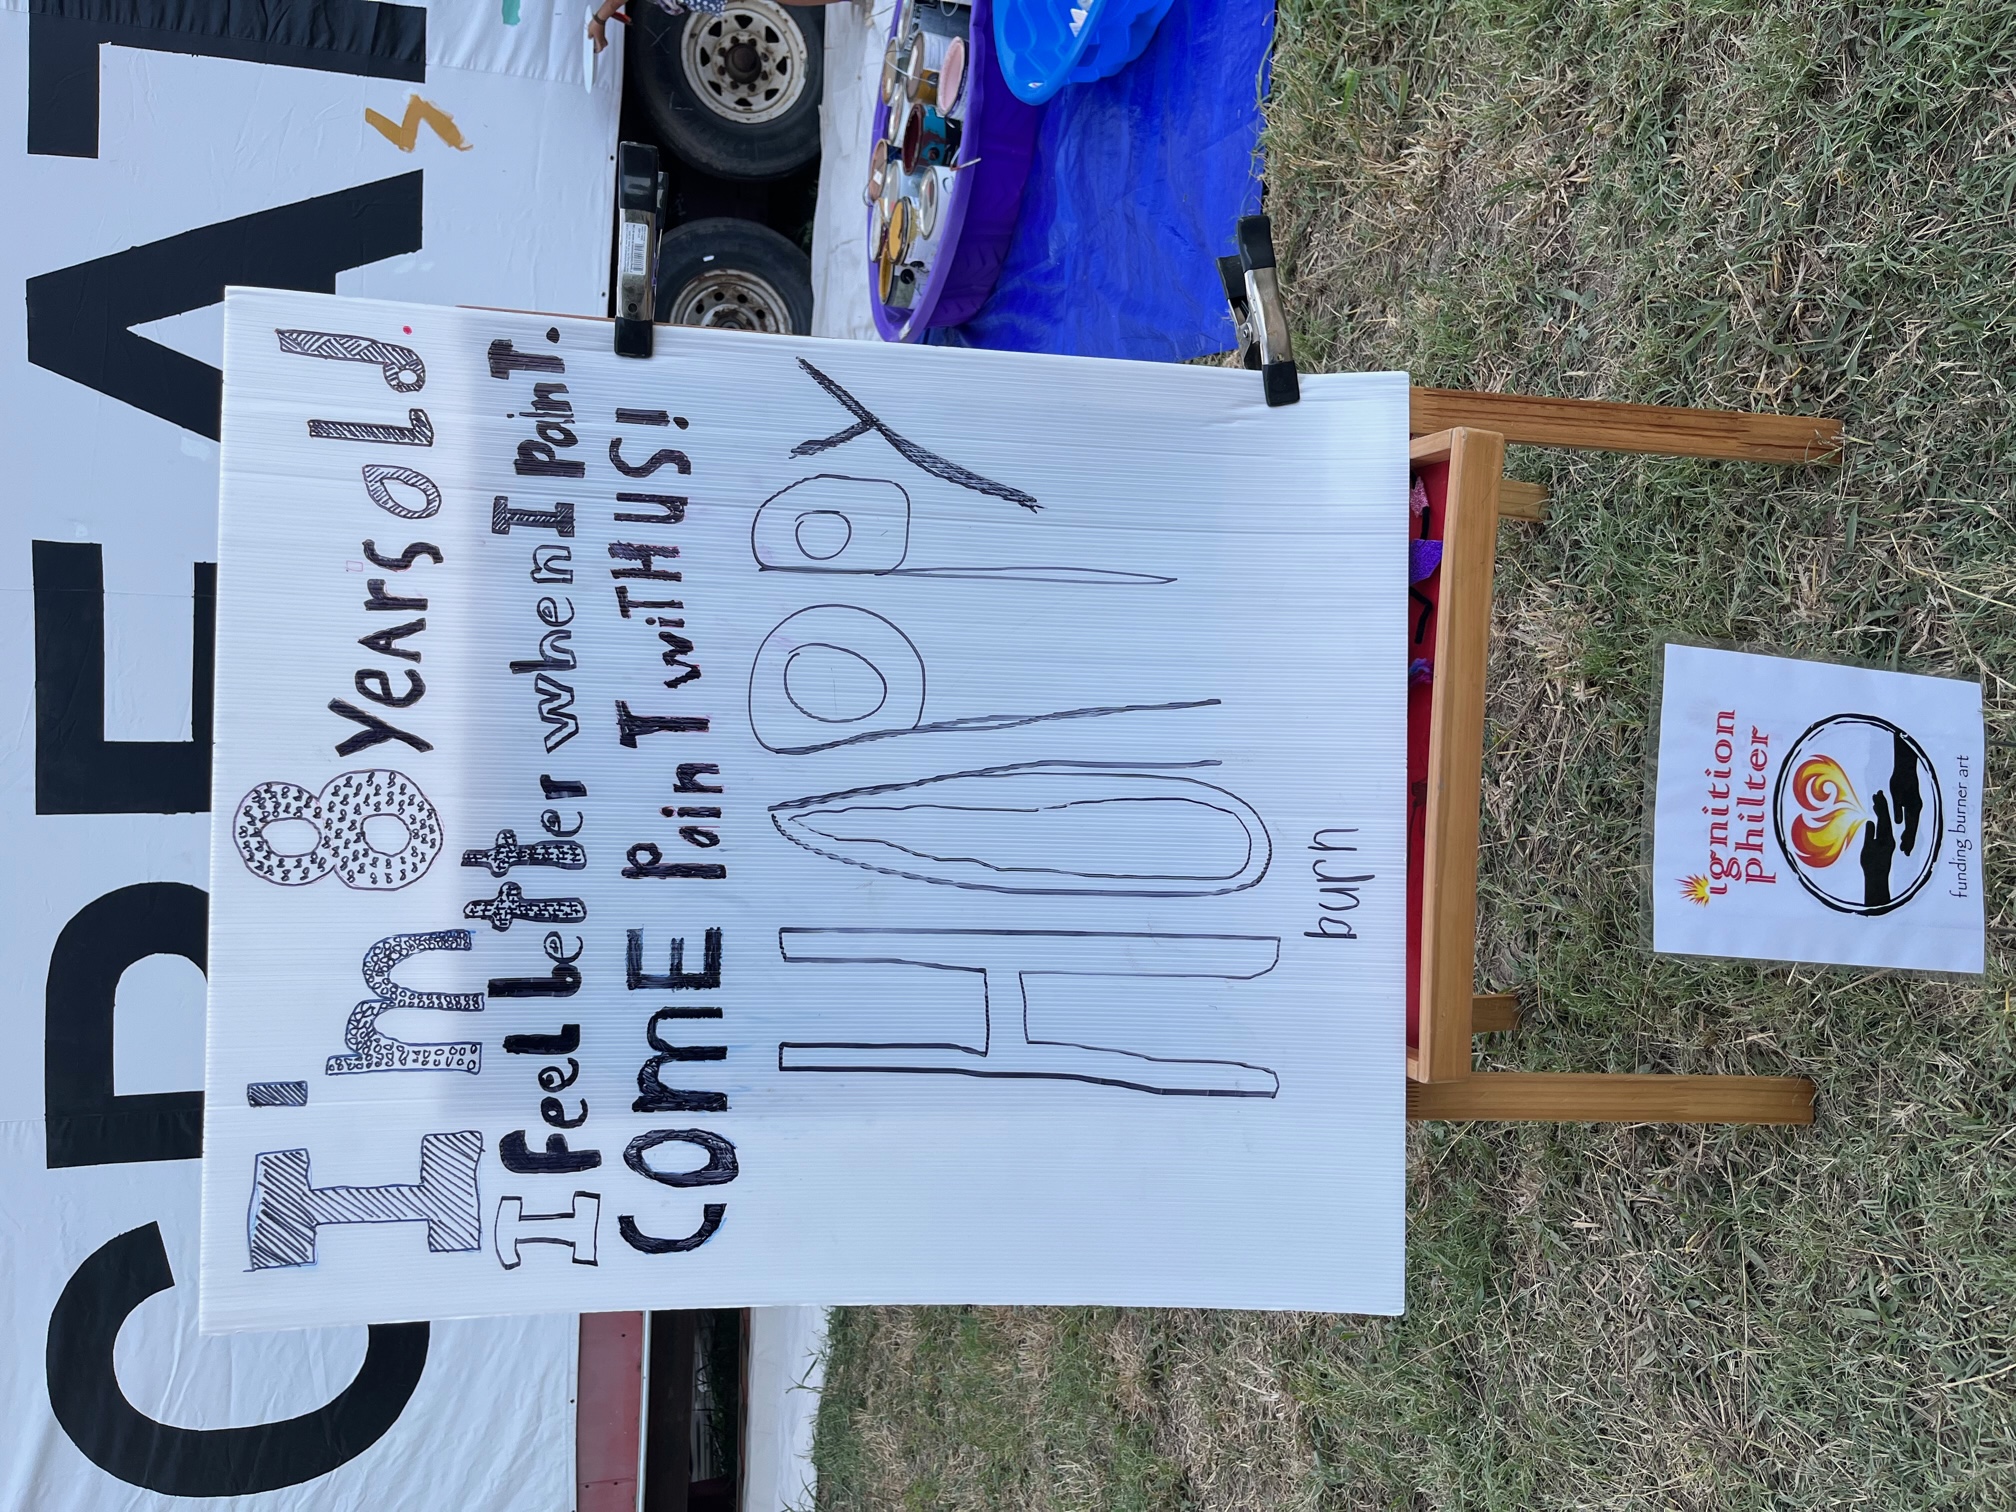 CREAT
I'm 8 years old.
I feel better when I paint.
COME Paint wiTH US!
HaPPy
burn
ignition
philter
funding burner art